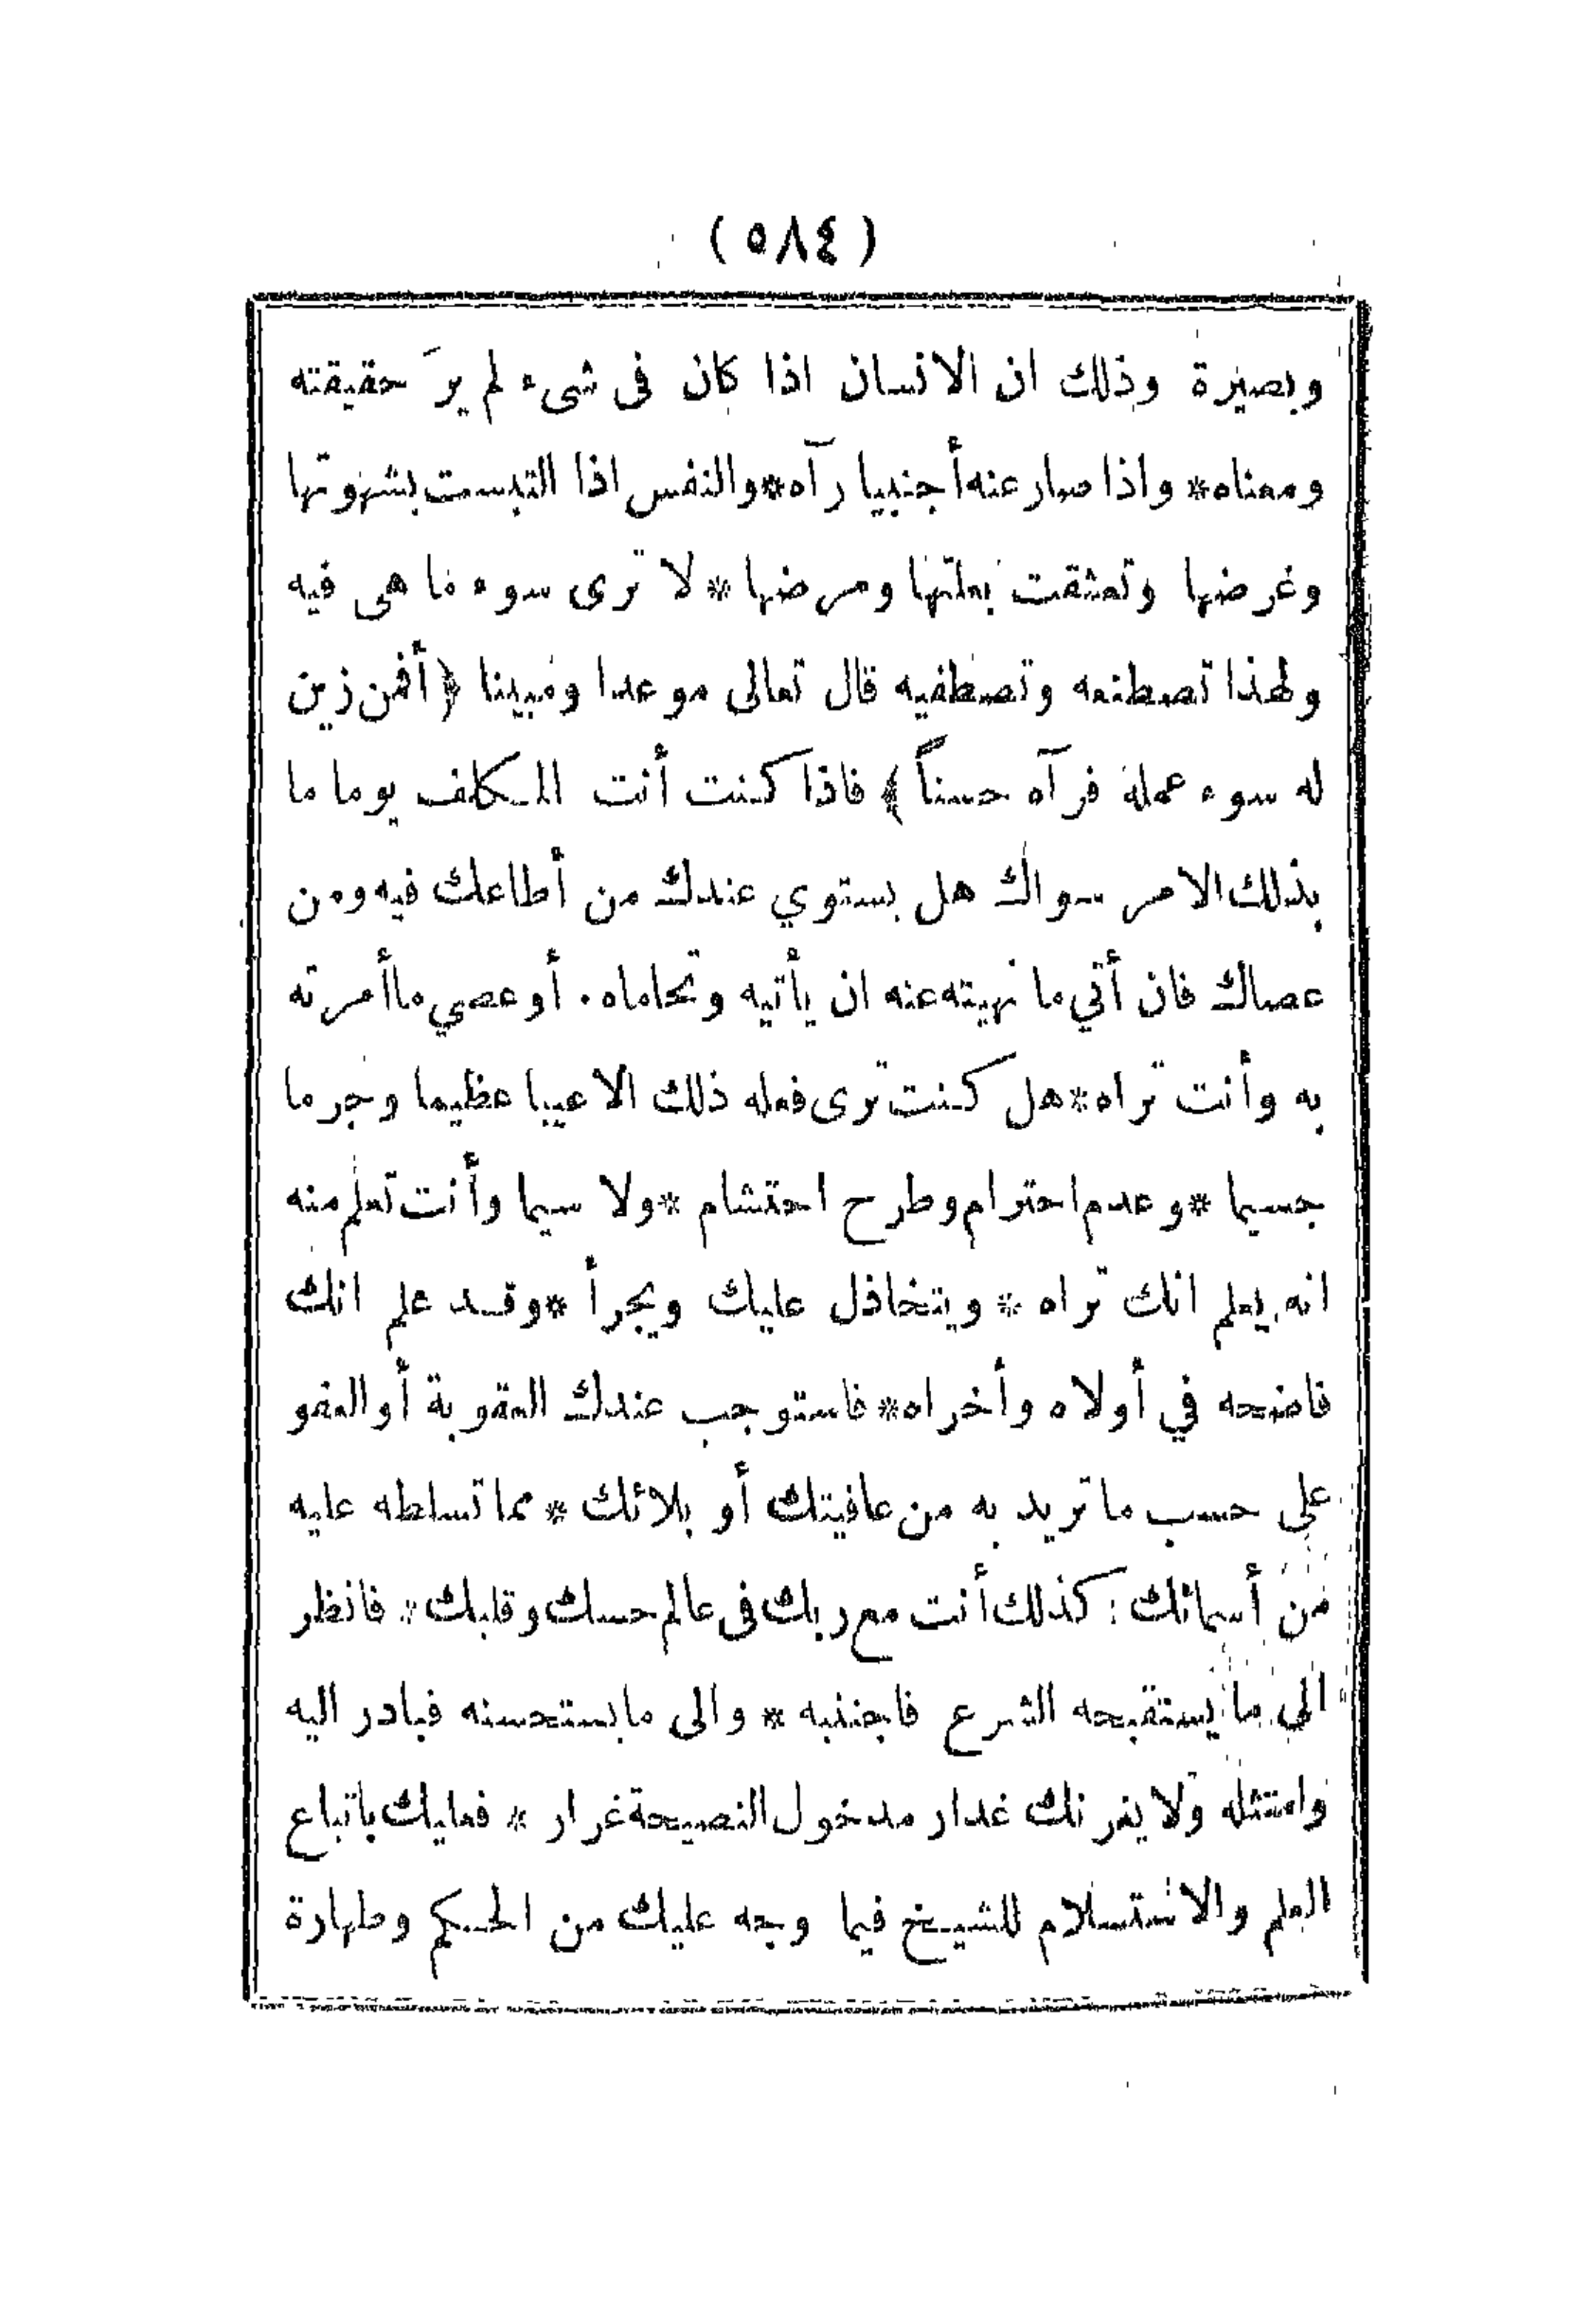 ( ٥٨٤ )
وبصيرة وذلك ان الانسان اذا كان فى شىء لم يرَ حقيقته
ومعناه* واذا صار عنه أجنبيا رآه* والنفس اذا التبست بشهوتها
وغرضها وتعشقت بعلتها ومرضها * لا ترى سوء ما هى فيه
ولهذا تصطنعه وتصطفيه قال تعالى موعدا ومبينا ﴿ أفمن زين
له سوء عمله فرآه حسناً ﴾ فاذا كنت أنت المكلف يوما ما
بذلك الامر سواك هل يستوي عندك من أطاعك فيه ومن
عصاك فان أتي ما نهيته عنه ان يأتيه وتحاماه . أو عصي ما أمرته
به وأنت تراه* هل كنت ترى فعله ذلك الا عيبا عظيما وجرما
جسيما * وعدم احترام وطرح احتشام * ولا سيما وأنت تعلم منه
انه يعلم انك تراه * ويتخاذل عليك ويجرأ * وقد علم انك
فاضحه في أولاه وأخراه* فاستوجب عندك العقوبة أو العفو
على حسب ما تريد به من عافيتك أو بلائك * مما تسلطه عليه
من أسمائك : كذلك أنت مع ربك فى عالم حسك وقلبك * فانظر
الى ما يستقبحه الشرع فاجتنبه * والى ما يستحسنه فبادر اليه
وامتثله ولا يغرنك غدار مدخول النصيحة غرار * فعليك باتباع
العلم والاستسلام للشيخ فيما وجه عليك من الحكم وطهارة